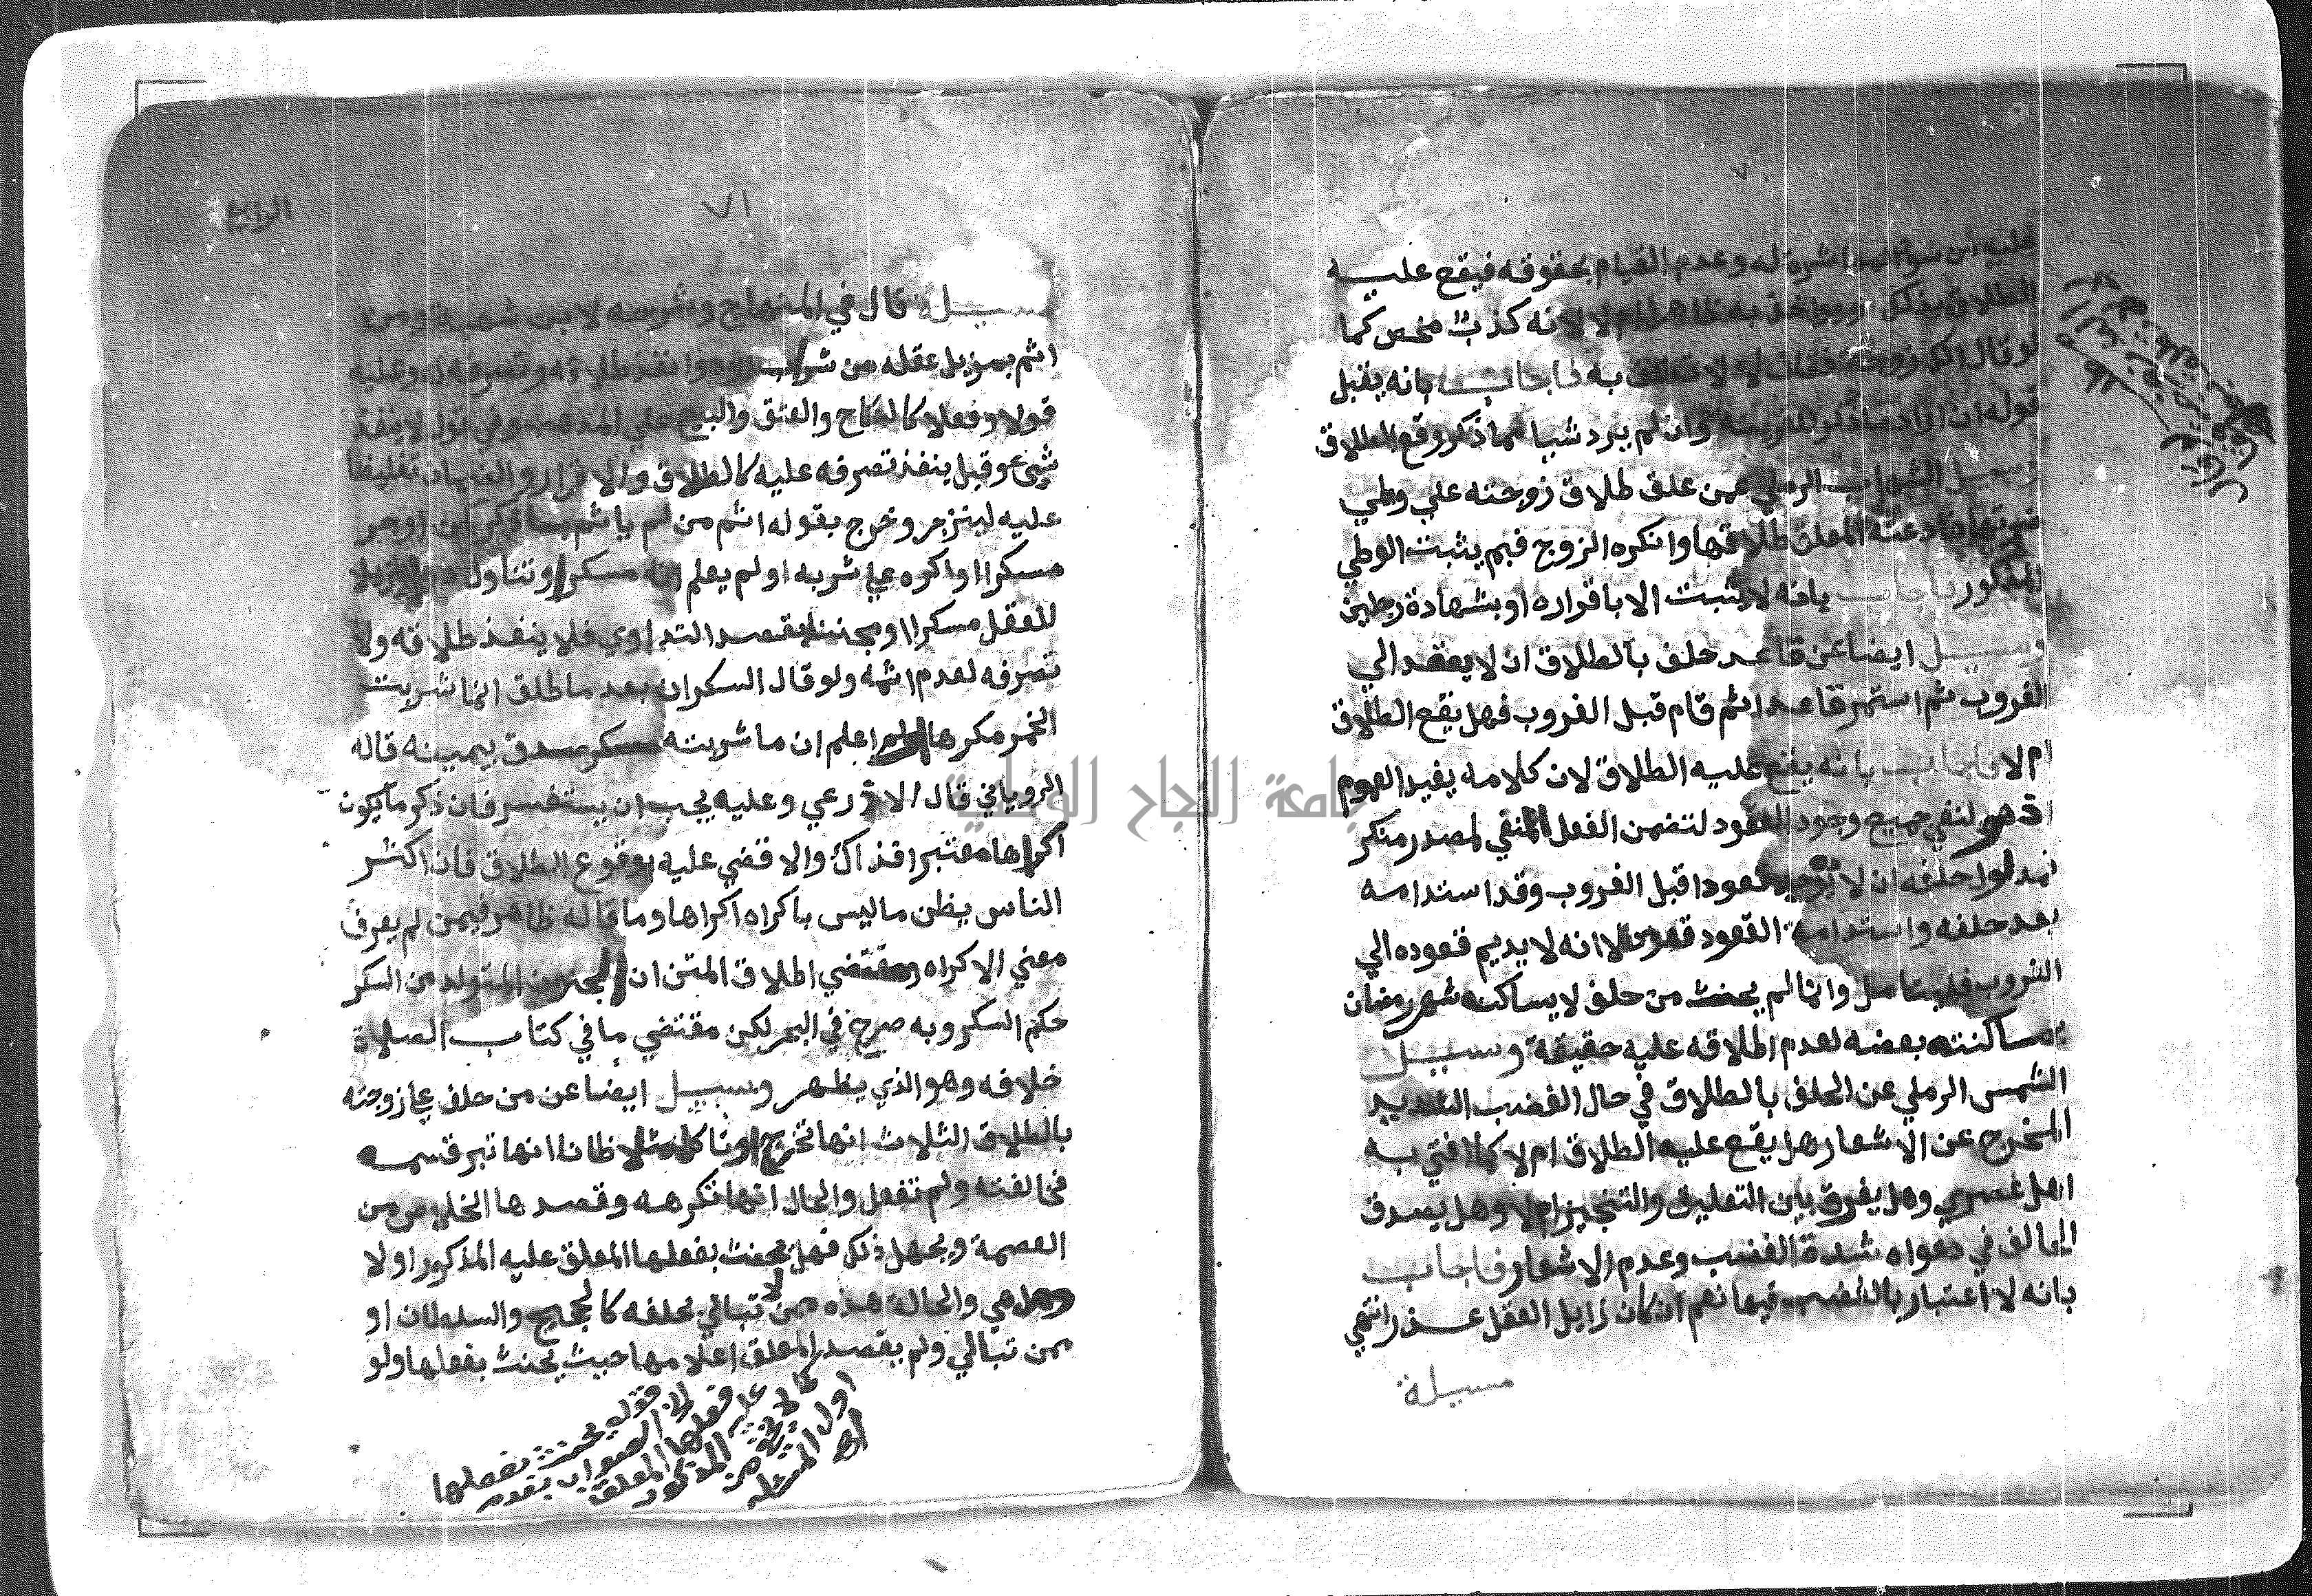 ٧٠
عليه من سوء المباشرة له وعدم القيام بحقوقه فيقع عليه
الطلاق بذلك ويواخذ به ظاهرا ام لا لانه كذب محض كما
لو قال الك زوجة فقال لا لا تطلق به فاجاب بانه يقبل
قوله ان اراد ما ذكر لقرينته وان لم يرد شيا مما ذكر وقع الطلاق
وسيل الشهاب الرملي عمن علق طلاق زوجته علي وطي
ضرتها فادعته المعلق طلاقها وانكره الزوج فبم يثبت الوطي
المذكور فاجاب بانه لا يثبت الا باقراره او بشهادة رجلين
وسيل ايضا عن قاعد حلف بالطلاق ان لا يقعد الي
الغروب ثم استمر قاعدا ثم قام قبل الغروب فهل يقع الطلاق
ام لا فاجاب بانه يقع عليه الطلاق لان كلامه يفيد العموم
اذ هو لنفي جميع وجود القعود لتضمن الفعل المنفي لمصدر منكر
فمدلول حلفه ان لا يوجد قعودا قبل الغروب وقد استدامه
بعد حلفه واستدامة القعود قعود لا انه لا يديم قعوده الي
الغروب فليتامل وانما لم يحنث من حلف لا يساكنه شهر رمضان
بمساكنته بعضه لعدم اطلاقه عليه حقيقة وسيل
الشمس الرملي عن الحلف بالطلاق في حال الغضب الشديد
المخرج عن الاشعار هل يقع عليه الطلاق ام لا كما افتي به
اهل عصري وهل يفرق بين التعليق والتنجيز ام لا وهل يصدق
الحالف في دعواه شدة الغضب وعدم الاشعار فاجاب
بانه لا اعتبار بالغضب فيها نعم ان كان زايل العقل عذر انتهي
مسيلة
٧١
الرابع
مسيلة قال في المنهاج وشرحه لابن شهبة ومن
اثم بمزيل عقله من شراب او دوا نفذ طلاقه وتصرفه له وعليه
قولا وفعلا كالنكاح والعتق والبيع علي المذهب وفي قول لا ينفذ
شيء وقيل ينفذ تصرفه عليه كالطلاق والاقرار والضمان تغليظا
عليه لينزجر وخرج بقوله اثم من لم ياثم بما ذكر كمن اوجر
مسكرا او اكره علي شربه او لم يعلم انه مسكر او تناول دوا مزيلا
للعقل مسكرا او مجننا بقصد التداوي فلا ينفذ طلاقه ولا
تصرفه لعدم اثمه ولو قال السكران بعد ما طلق انما شربت
الخمر مكرها ولم اعلم ان ما شربته مسكر صدق بيمينه قاله
الروياني قال الاذرعي وعليه يجب ان يستفسر فان ذكر ما يكون
اكراها معتبرا فذاك والا قضي عليه بوقوع الطلاق فان اكثر
الناس يظن ما ليس باكراه اكراها وما قاله ظاهر فيمن لم يعرف
معني الاكراه ومقتضي اطلاق المتن ان الجنون المتولد من السكر
حكم السكر وبه صرح في البحر لكن مقتضي ما في كتاب الصلاة
خلافه وهو الذي يظهر وسيل ايضا عن من حلف علي زوجته
بالطلاق الثلاث انها تخرج او تاكل مثلا ظانا انها تبر قسمه
فخالفته ولم تفعل والحال انها تكرهه وقصدها الخلاص من
العصمة ويجهل ذلك فهل يحنث بفعلها المعلق عليه المذكور او لا
وهل هي والحالة هذه ممن لا تبالي بحلفه كالحجيج والسلطان او
ممن تبالي ولم يقصد المعلق اعلامها حيث يحنث بفعلها ولو
قوله يحنث بفعلها
لان الصواب بعدم
فعلها المعلق
عليه المذكور
كما لا يخفى من
اول المسئله
اهـ
جامعة النجاح الوطنية